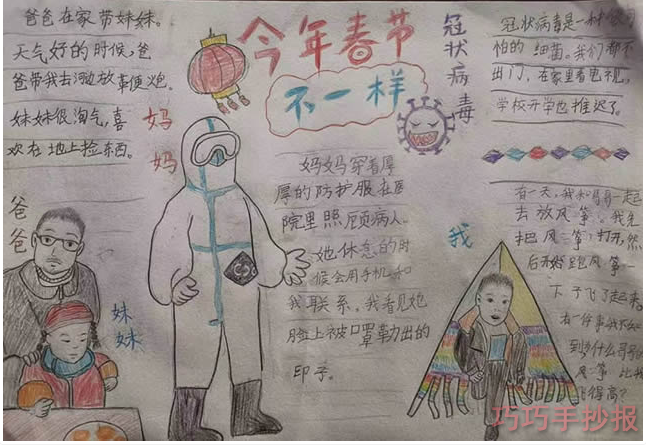 今年春节
不一样
爸爸在家带妹妹。
天气好的时候,爸
爸带我去河边放事便炮。
妹妹很淘气,喜
欢在地上捡东西。
妈
妈
爸
爸
妹
妹
冠状病毒
冠状病毒是一种很可
怕的细菌。我们都不
出门,在家里看电视,
学校开学也推迟了。
妈妈穿着厚
厚的防护服在医
院里照顾病人。
她休息的时
候会用手机和
我联系。我看见她
脸上被口罩勒出的
印子。
我
有一天,我和哥哥一起
去放风筝。我先
把风筝打开,然
后开始跑风筝一
下子飞了起来。
有一件事我不知
到为什么哥哥的
风筝比我
飞得高?
巧巧手抄报